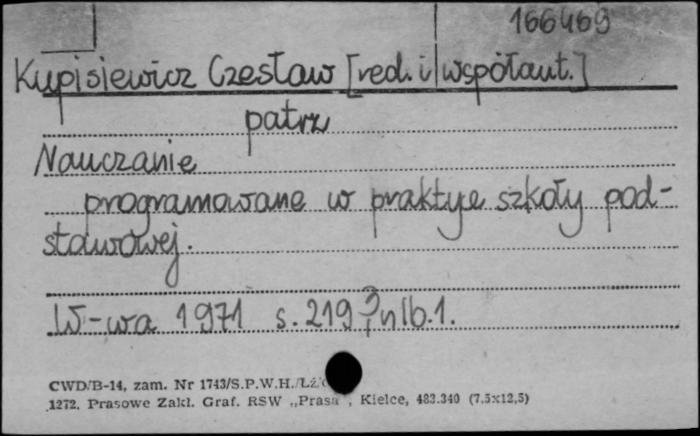 166469
Kupisiewicz Czesław [red. i współaut.]
patrz
Nauczanie
programowane w praktyce szkoły pod-
stawowej.
W-wa 1971 s. 219, nlb. 1.
CWD/B-14, zam. Nr 1743/S.P.W.H./Łż/
1272. Prasowe Zakł. Graf. RSW „Prasa", Kielce, 483.340 (7,5x12,5)